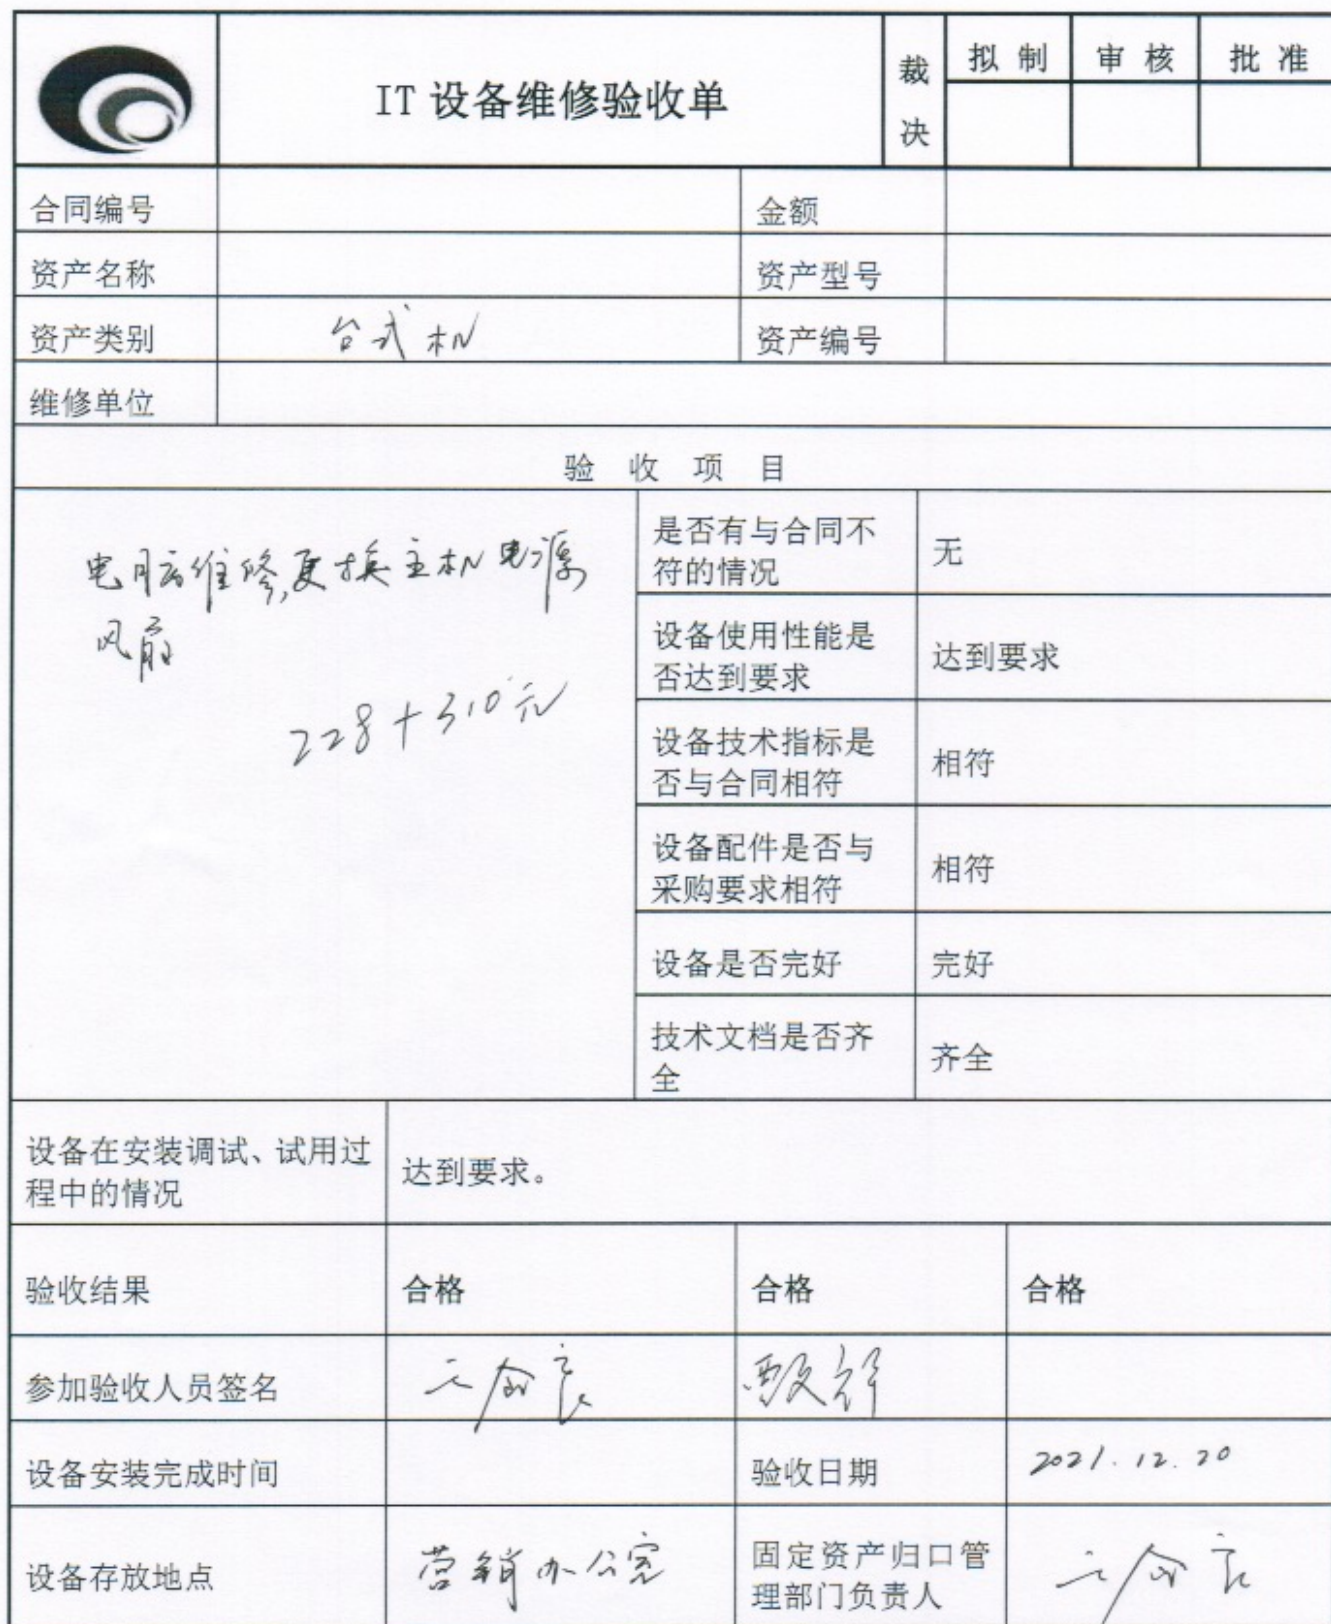 IT设备维修验收单
裁决
拟制 审核 批准
合同编号 金额
资产名称 资产型号
资产类别 台式机 资产编号
维修单位
验收项目
电脑维修,更换主机电源
风扇
228+310元
是否有与合同不
符的情况
无
设备使用性能是
否达到要求
达到要求
设备技术指标是
否与合同相符
相符
设备配件是否与
采购要求相符
相符
设备是否完好 完好
技术文档是否齐
全
齐全
设备在安装调试、试用过
程中的情况
达到要求。
验收结果 合格 合格 合格
参加验收人员签名
设备安装完成时间 验收日期 2021.12.20
设备存放地点 营销办公室
固定资产归口管
理部门负责人